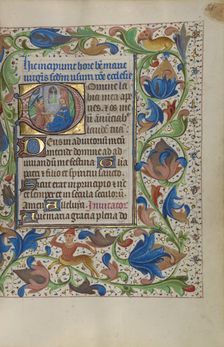 Incipiunt hore be marie
virginis scdm usum roe ecclesie
Domine la
bia mea apries
et os me
um annūciabit
laudē tuā
Deus in adiutoriū meū
intende domine ad ad
iuuandū me festina Glia
patri et filio et spiritui sancto
Sicut erat in principio et nūc
et semper et in secula seculorū
amen Alleluya Inuitator
Aue maria gracia plena do